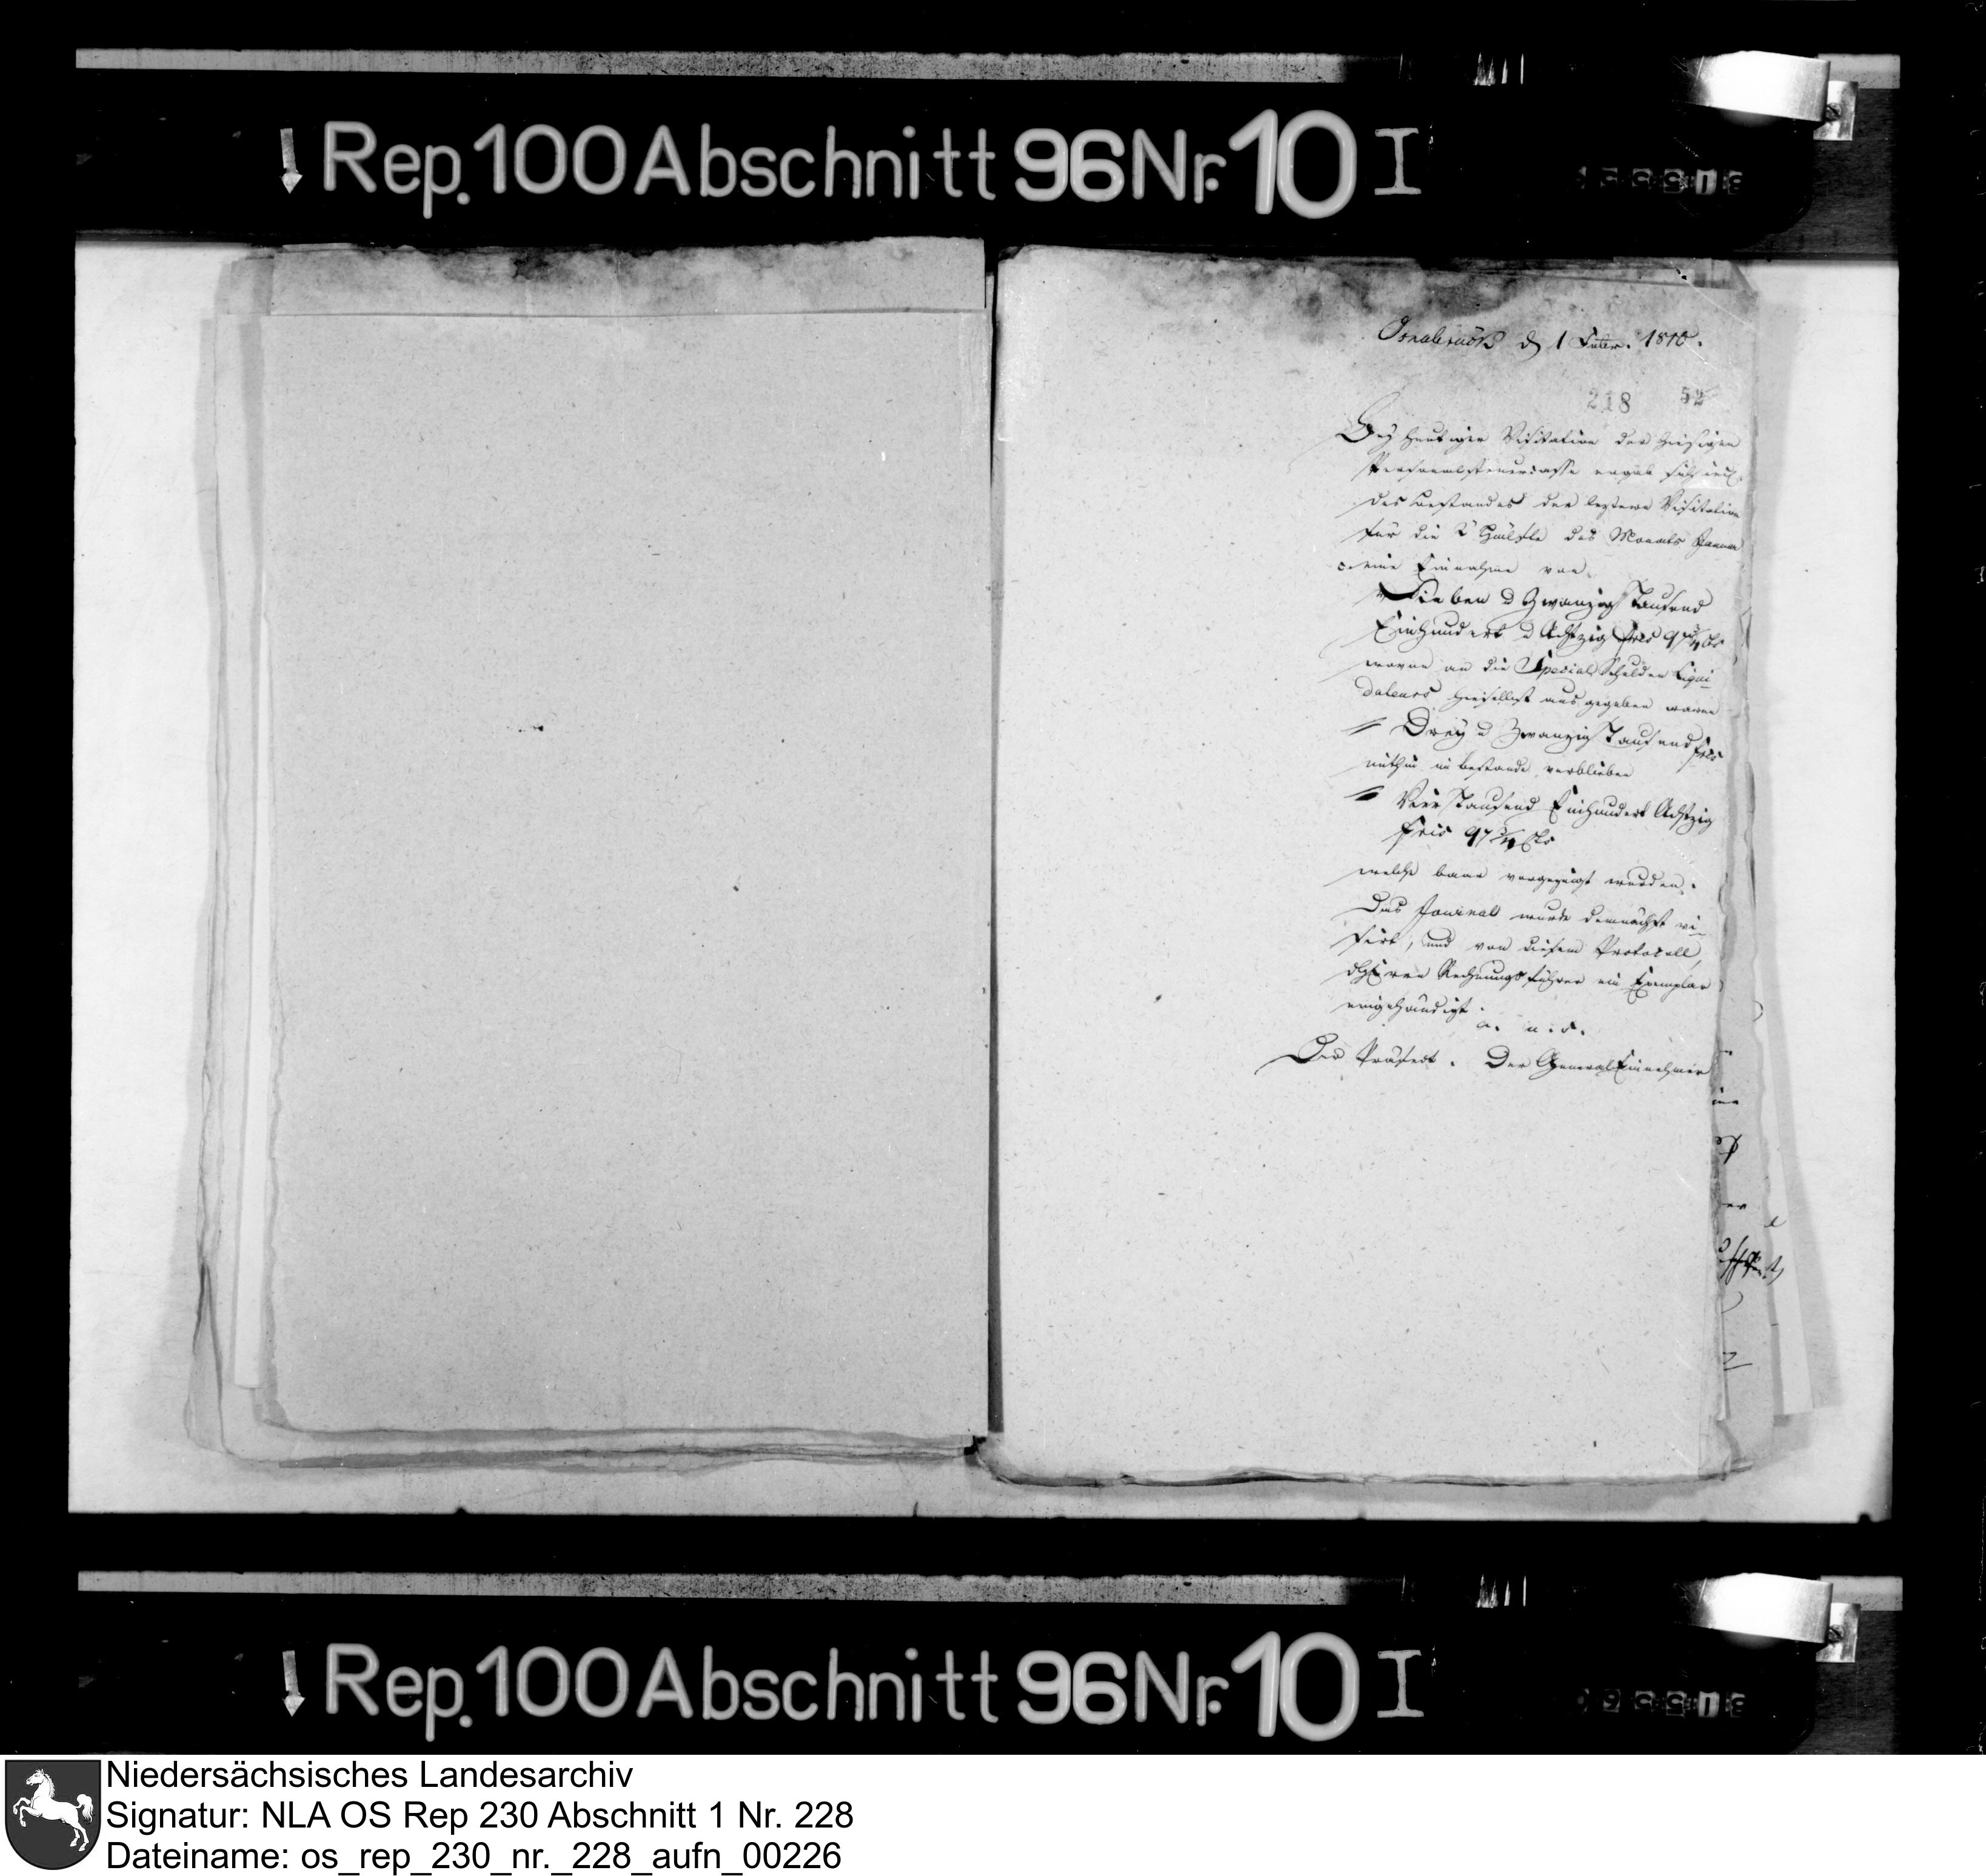 Rep. 100 Abschnitt 96 Nr. 10 I
Osnabrück d 1 Febr. 1810.
218 52
Bey heutiger Visitation der hiesigen
Personalsteuercasse ergab sich incl.
des Bestandes der leztern Visitation
für die 2 Hälfte des Monats Januar
c. eine Einnahme von
Sieben d Zwanzig Tausend
Einhundert d Achtzig frcs 97 3/4 Cts
wovon an die Special Schulden Liqui-
dateurs hieselbst ausgegeben waren
Drey d Zwanzig Tausend frcs
mithin in bestande verblieben
Vier Tausend Einhundert Achtzig
frcs 97 3/4 Cts
welche baar vorgezeigt wurden.
Das Journal wurde demnächst vi-
sirt, und von diesem Protocoll,
Rechnungsführer ein Exemplar
eingehändigt.
a. u. s.
Der Präfect. Der General Einnehmer
Rep. 100 Abschnitt 96 Nr. 10 I
Niedersächsisches Landesarchiv
Signatur: NLA OS Rep 230 Abschnitt 1 Nr. 228
Dateiname: os_rep_230_nr._228_aufn_00226